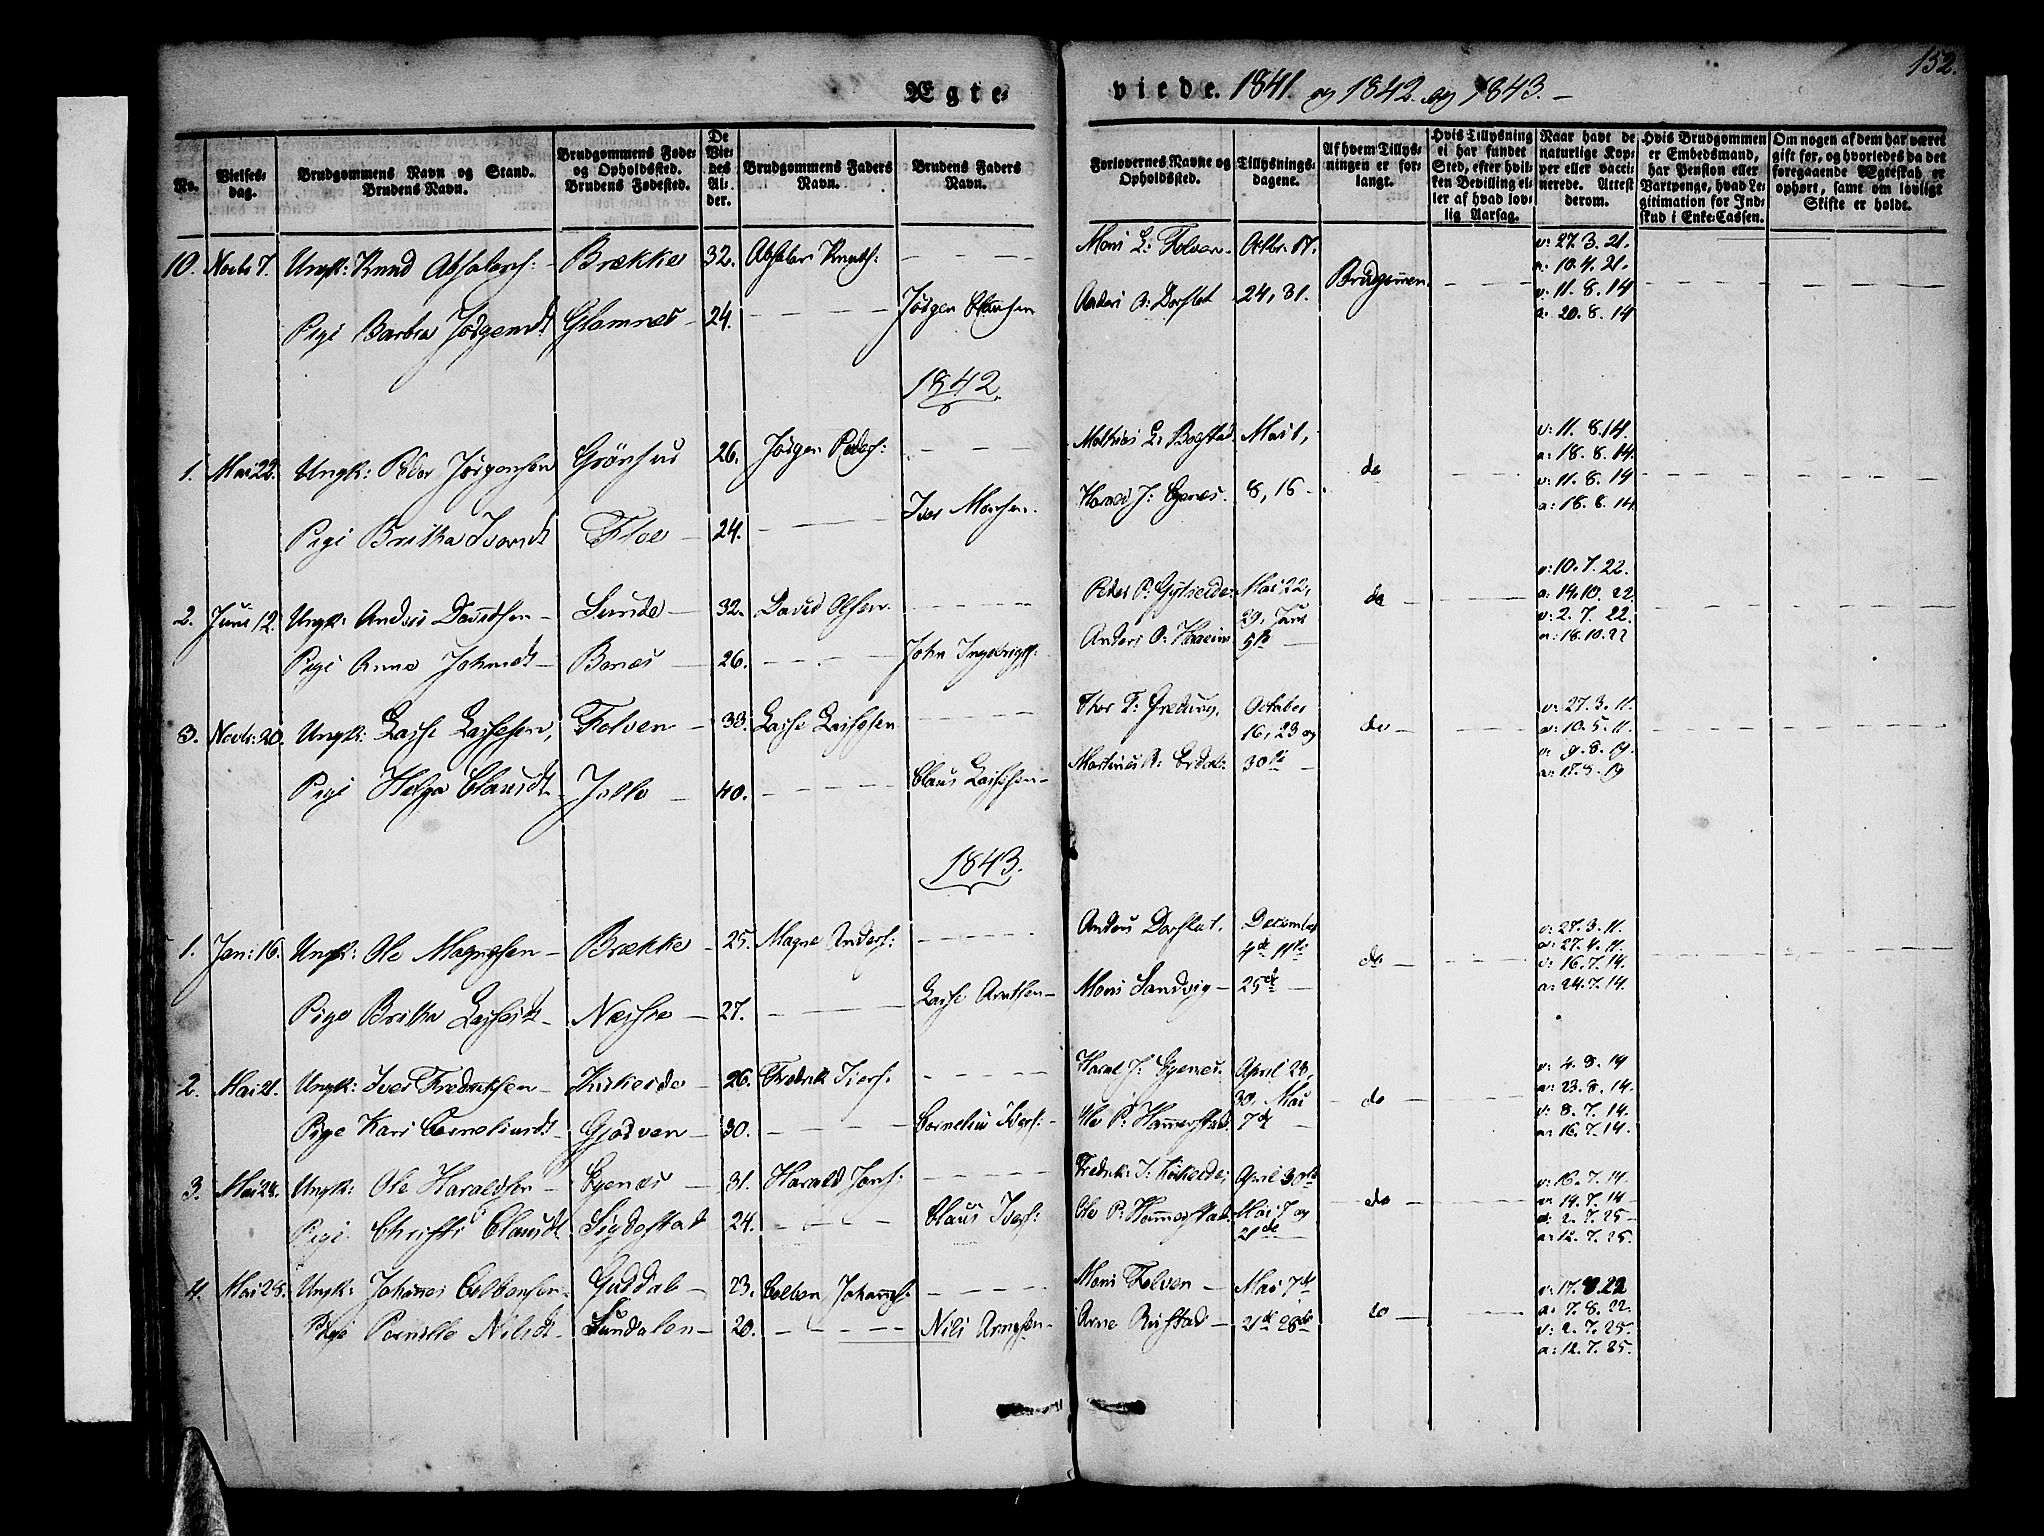 152.
Ægte-
viede. 1841. og 1842. og 1843.
No.
Vielses-dag.
Brudgommens Navn og Stand. Brudens Navn.
Brudgommens Føde- og Opholdssted. Brudens Fødested.
De Viedes Alder.
Brudgommens Faders Navn.
Brudens Faders Navn.
Forlovernes Navne og Opholdssted.
Tillysnings-dagene.
Af hvem Tillysningen er forlangt.
Hvis Tillysning ei har fundet Sted, efter hvilken Bevilling eller af hvad lovlig Aarsag.
Naar havt de naturlige Kopper eller vaccinerede. Attest derom.
Hvis Brudgommen er Embedsmand, har Pension eller Vartpenge, hvad Legitimation for Indskud i Enke-Cassen.
Om nogen af dem har været gift før, og hvorledes da det foregaaende Ægteskab er ophørt, samt om lovligt Skifte er holdt.
10. Novbr 7. Ungk: Knud Absalons: Brække 32. Absalon Knuts: Mons L: Folven Octbr. 17. Brudgommen v: 27. 3. 21.
a: 10. 4. 21.
Pige Barbra Jørgensdt Glomnes 24. Jørgen Clausen Anders A: Dorflot 24, 31. v: 11. 8. 14
a: 20. 8. 14
1842
1. Mai 22. Ungk: Peder Jørgensen Grønfur 26. Jørgen Peders: Mathias L: Bolstad Mai 1, do v: 11. 8. 14.
a: 18. 8. 14.
Pige Britha Iversdt Floe 24. Iver Monsen Hans J: Eyenes 8, 15 v: 11. 8. 14
a: 18. 8. 14
2. Juni 12. Ungk: Anders Davidsen Sunde 32. David Olsen Peder P: Gytreide Mai 22, do v: 10. 7. 22.
29, Juni a: 14. 10. 22
Pige Anna Johnsdt Bones 26. John Ingebrigts: Anders O: Haaheim 5te v: 2. 7. 22.
a: 18. 10. 22
3. Novbr: 20. Ungk: Lasse Lassesen, Folven 33. Lasse Lassesen Thor T: October do v: 27. 3. 11.
16, 23 og a: 10. 5. 11.
Pige Helga Clausdt Jølle 40. Claus Lassesen Martinus R: Erdal 30te v: 9. 8. 19.
a: 17. 8. 19
1843.
1. Jan: 16. Ungk: Ole Magnesen Brække 25. Magne Anders: Anders Dorflot. December do v: 27. 3. 11.
4de 11te a: 27. 4. 11.
v: 16. 7. 14.
Pige Britha Lassesdt Nesje 27. Lasse Arnesen Mons Sandvig 25de a: 24. 7. 14.
2. Mai 21. Ungk: Iver Fredriksen Kirkeide 26. Fredrik Ivers: Harald J: Eyenes April 23, do v: 4. 8. 19
30. Mai a: 23. 8. 14.
Pige Kari Corneliusdt Gjødven 30. Cornelius Ivers: Ole P: Hammerstad 7de v: 8. 7. 14.
a: 16. 7. 14.
3. Mai 28. Ungk: Ole Haraldsen Eyenes 31. Harald Jons: Fredrik I: Kirkeide, April 30te do v: 16. 7. 14.
a: 14. 7. 14
Pige Christi Clausdt Sigdestad 24. Claus Ivers: Ole P: Hammerstad Mai 7 og v: 2. 7. 25
21de a: 12. 7. 25.
4. Mai 28. Ungk: Johannes Colbensen Guddal 23. Colben Johanns: Mons Folven Mai 7de do v: 17. 8. 22
a: 7. 8. 22.
Pige Pernille Nilsdt Sundalen 20. Nils Arnesen Arne Rustad 21de 28de v: 2. 7. 25.
a: 12. 7. 25.